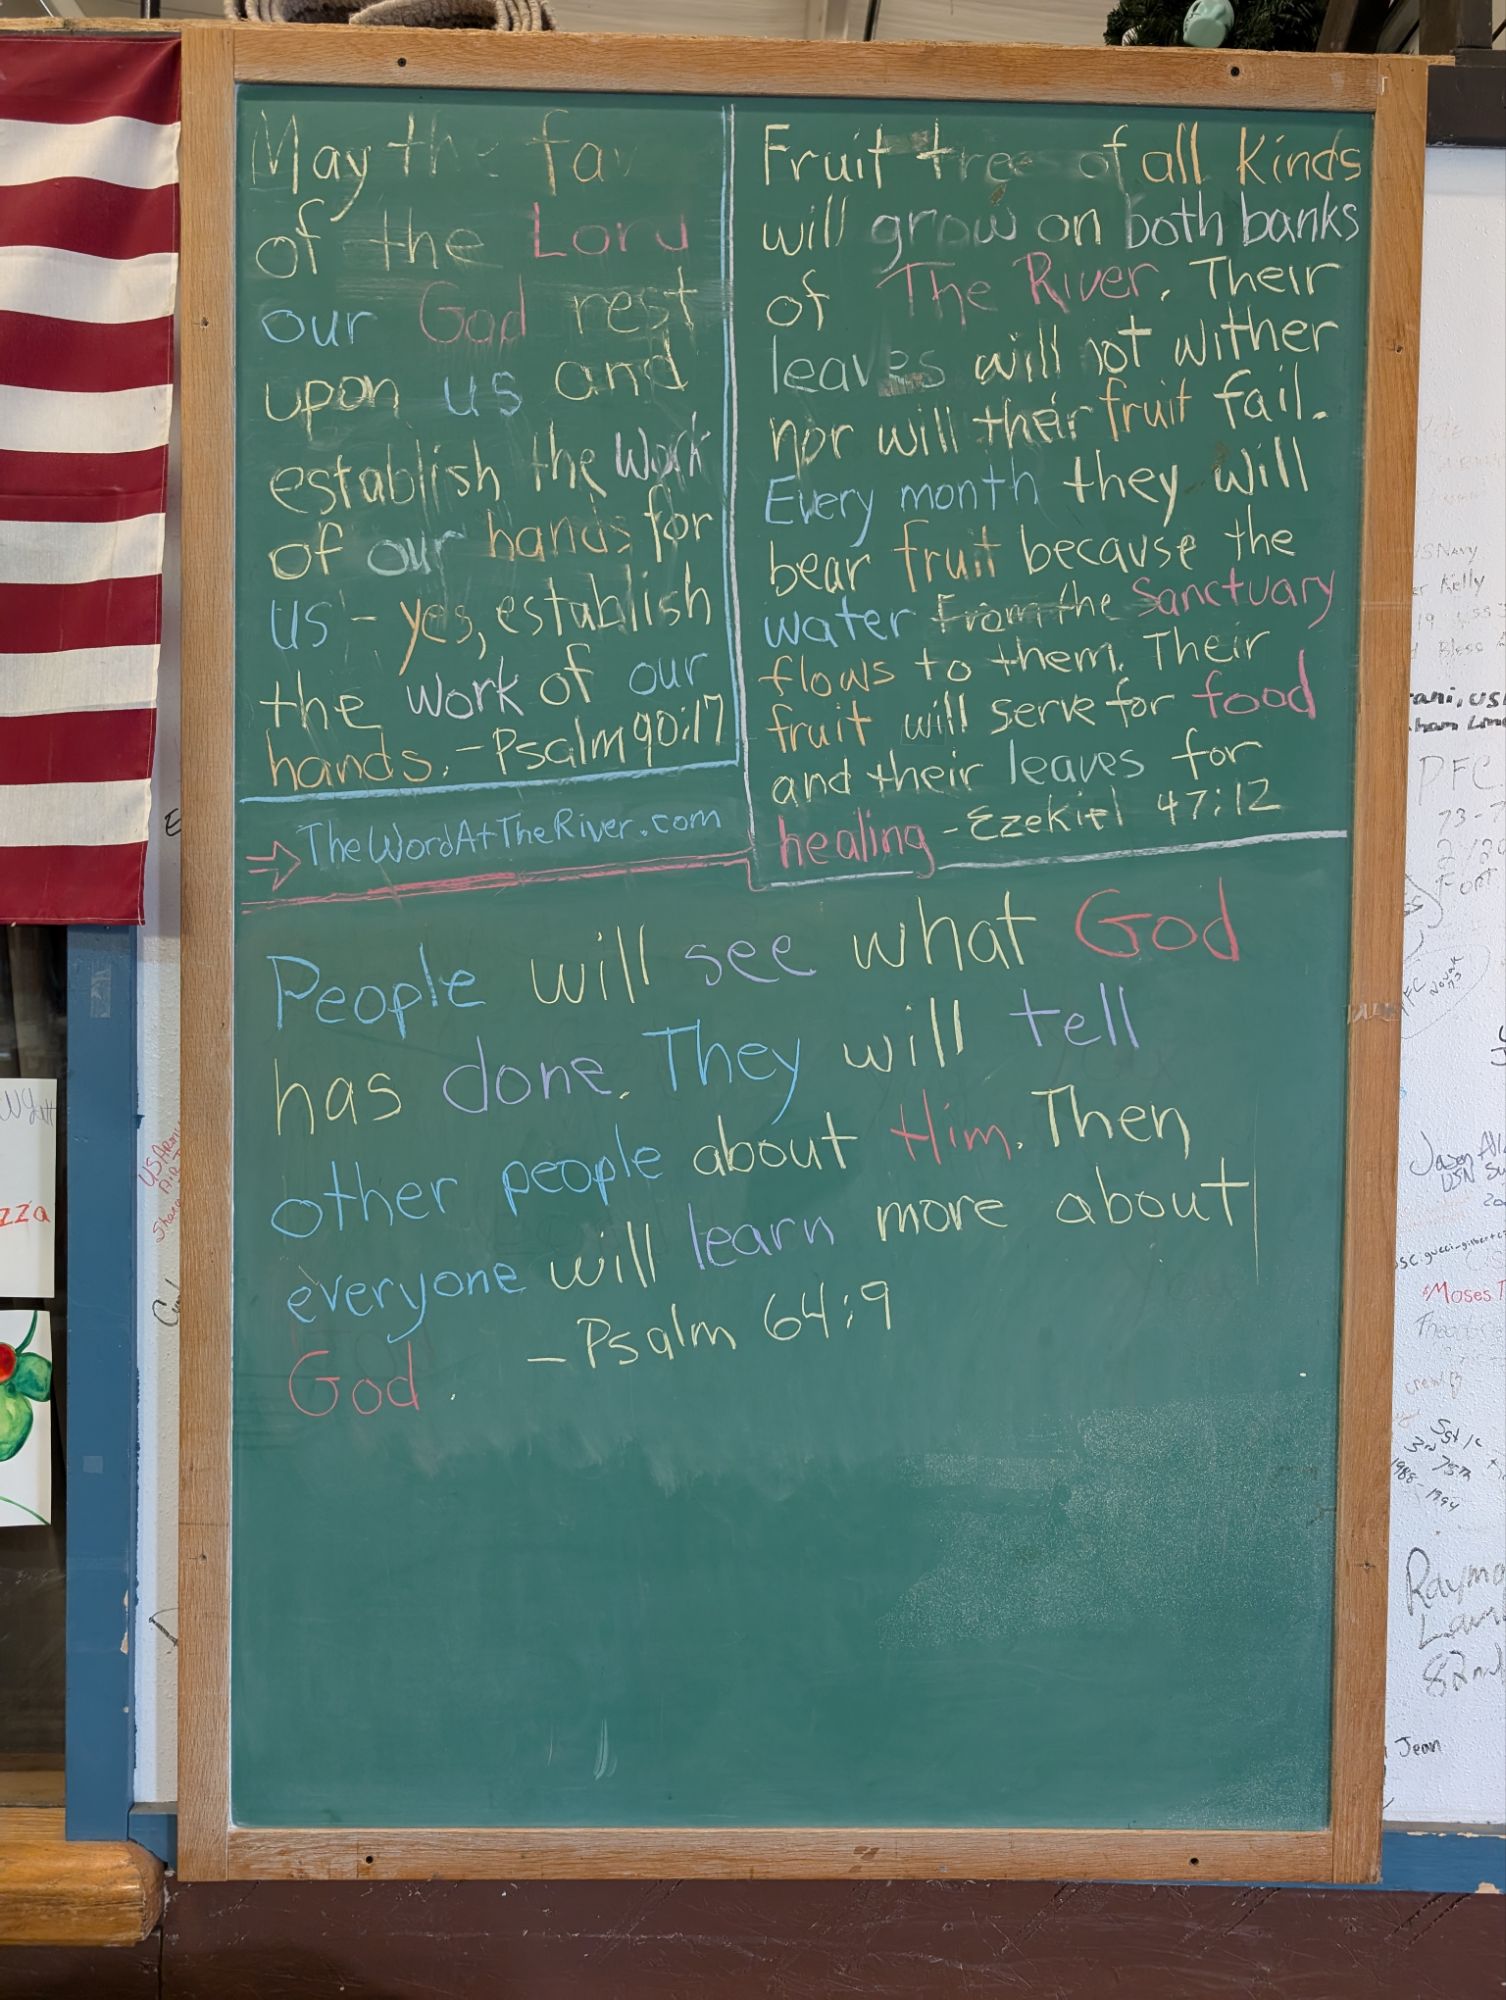 May the fav
of the Lord
our God rest
upon us and
establish the work
of our hands for
us - yes, establish
the work of our
hands. - Psalm 90:17
→ TheWordAtTheRiver.com
Fruit trees of all Kinds
will grow on both banks
of The River. Their
leaves will not wither
nor will their fruit fail.
Every month they will
bear fruit because the
water from the Sanctuary
flows to them. Their
fruit will serve for food
and their leaves for
healing - Ezekiel 47:12
People will see what God
has done. They will tell
other people about Him. Then
everyone will learn more about
God. - Psalm 64:9
Wyatt
zza
US Army
USNavy
Kelly
Bless
PFC
73-7
PFC
Jason
USN
Moses
crew
3rd
75th
1988-1994
Raymo
82nd
Jean